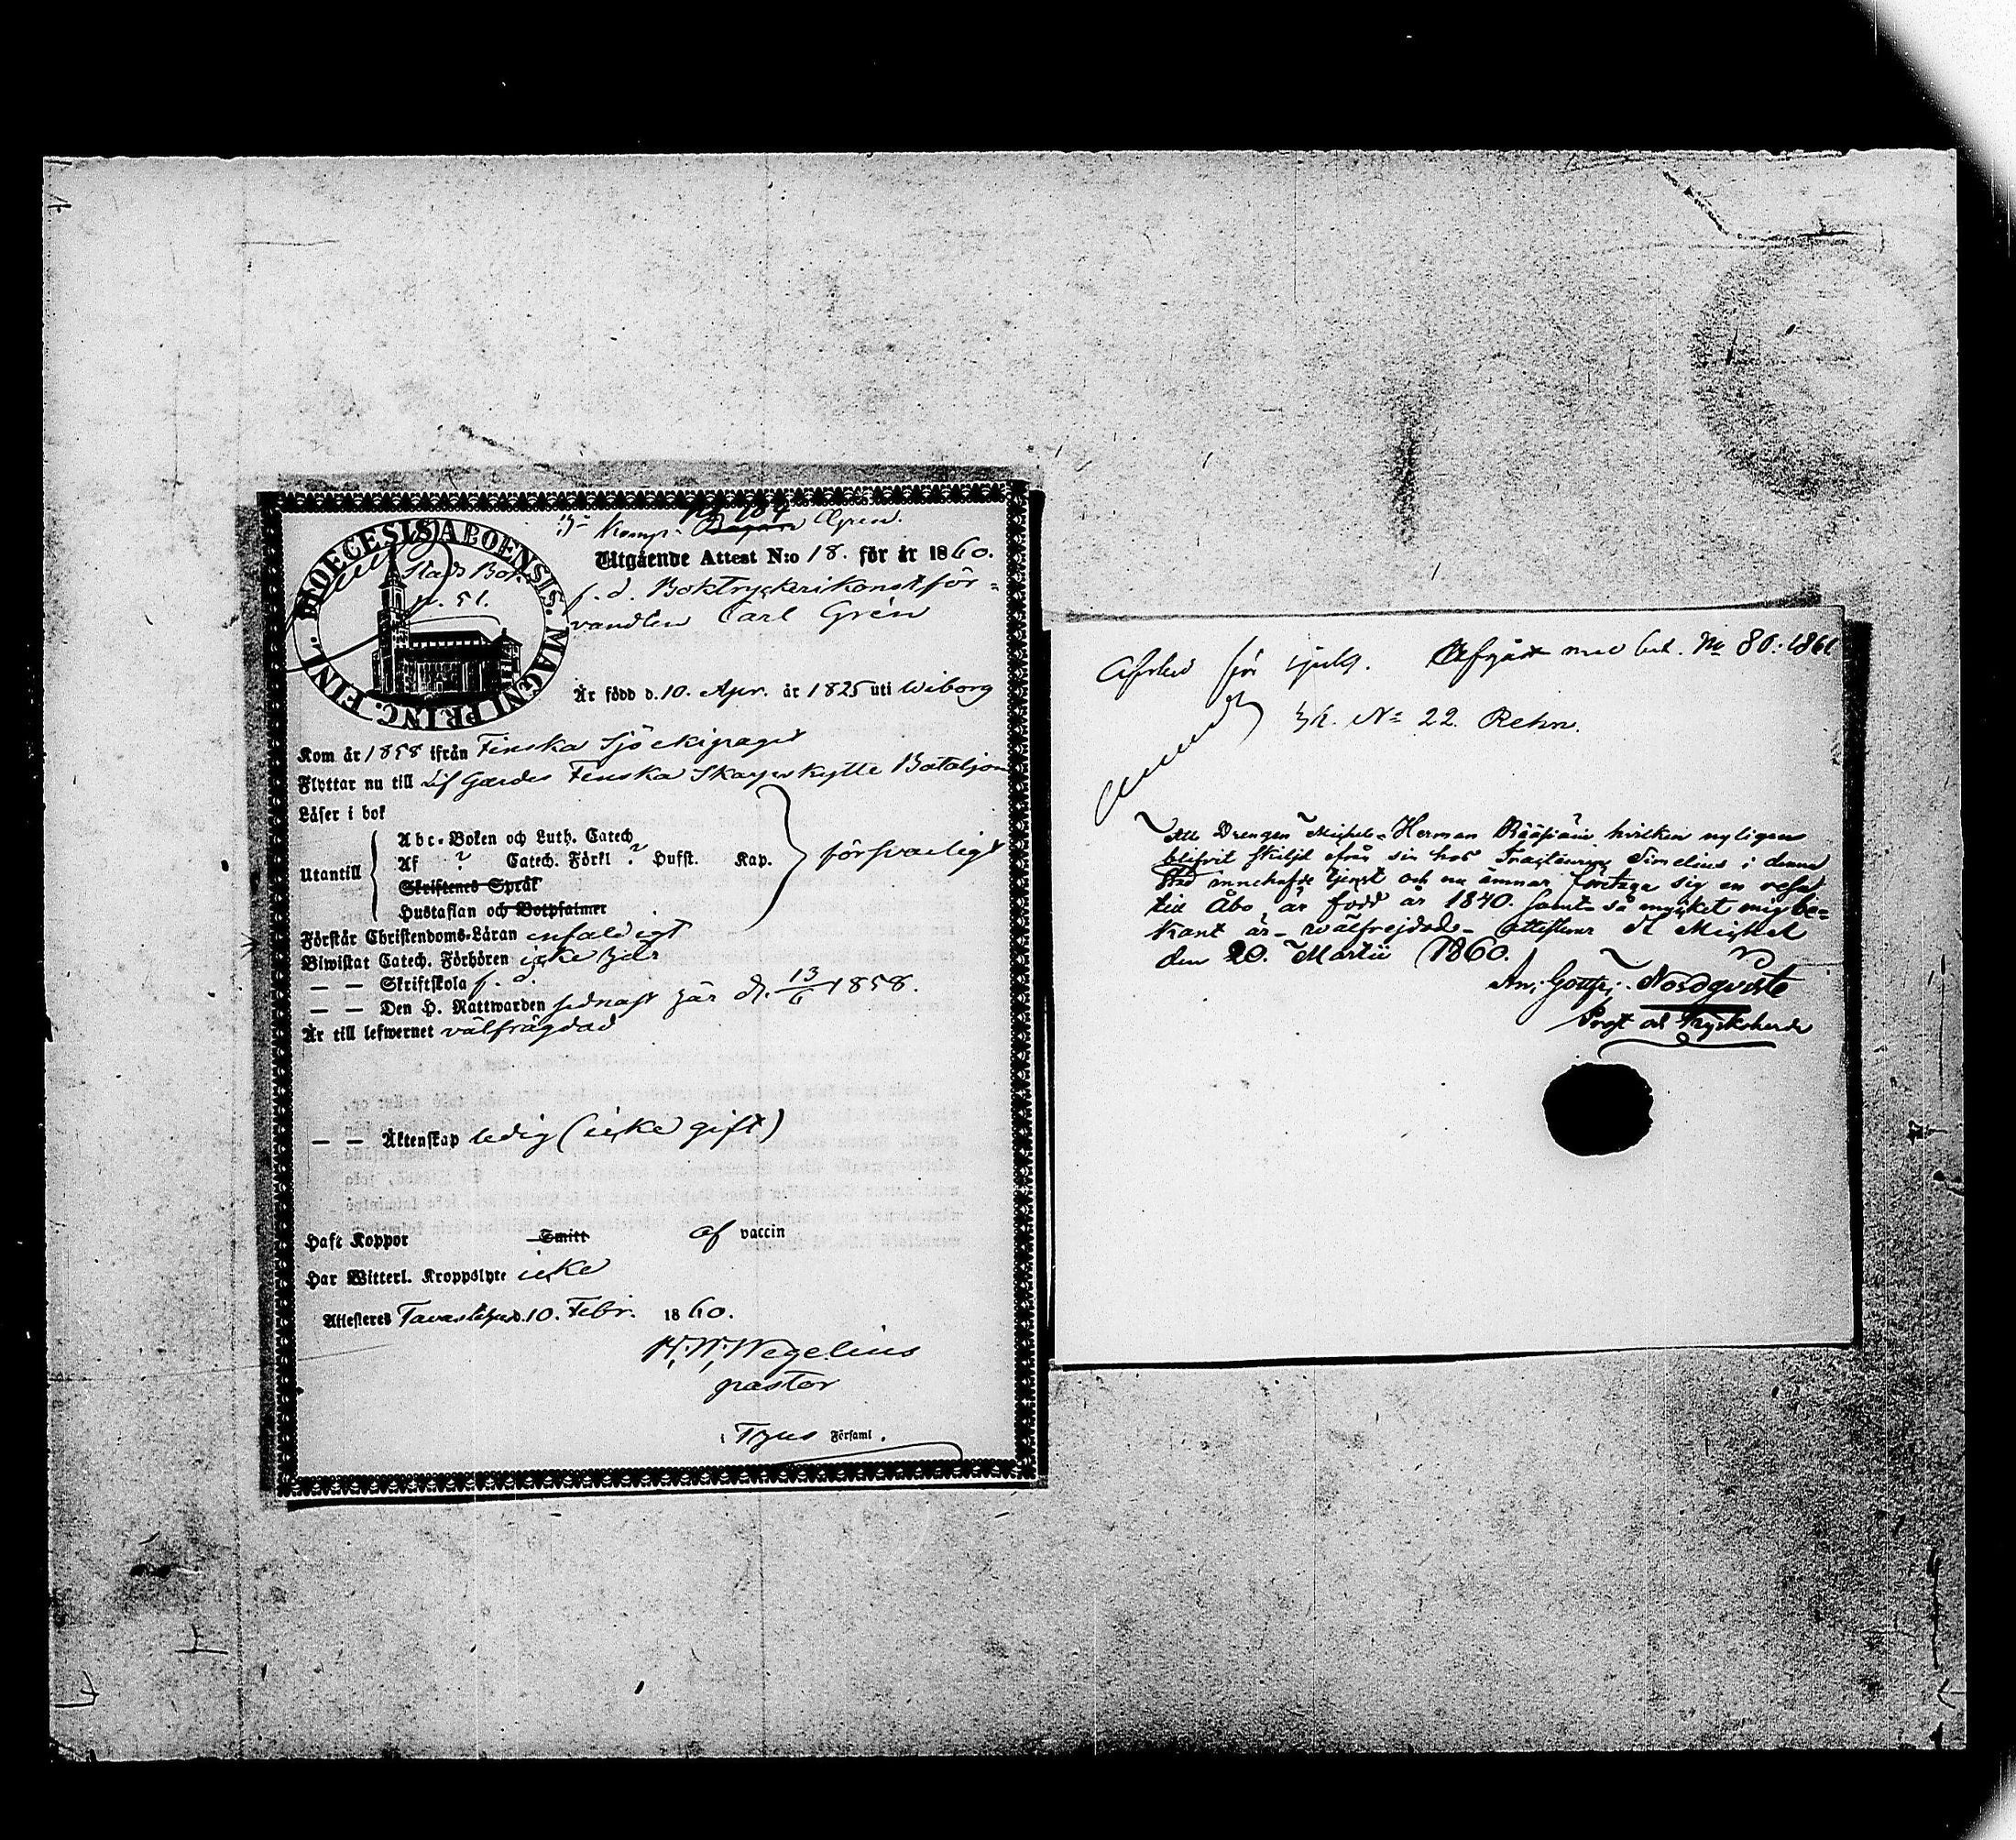 DIOECESIS ABOENSIS. MAGNI PRINC. FINL.
Stads Bok
p. 51.
Komp. Gren.
Utgående Attest N:o 18. för år 1860.
f. d. Boktryckerikonstför-
vandten Carl Grén
Är född d. 10. Apr. år 1825 uti Wiborg
Kom år 1858 ifrån Finska Sjö ekipaget
Flyttar nu till Lif Gardes Finska Skarpskytte Bataljon
Läser i bok
Utantill
Abc-Boken och Luth. Catech
Af ? Catech. Förkl ? Husst. Kap.
Skriftenes Språk
Hustaflan och Botpsalmer
försvarligt
Förstår Christendoms-Läran enfaldigt
Biwistat Catech. Förhören icke här
— — Skriftskola f. d.
— — Den H. Nattwarden sednast här d. 13/6 1858.
Är till lefwernet välfrägdad
— — Äktenskap ledig (icke gift)
Haft Koppor Smitt af vaccin
Har Witterl. Kroppslyte icke
Attesteres Tavastehus d. 10. Febr. 1860.
H. W. Wegelius
pastor
i Thus Församl.
Afsked för sjukl. Afgått med bet. No 80: 1861
No 22. Rehn.
Att Drengen Michel Herman Rääpiäin hvilken nyligen
blifvit skiljd ifrån sin hos Tractören Simelius i denna
Stad innehafde tjenst och nu ämnar företaga sig en resa
till Åbo, är född år 1840. samt så mycket mig be-
kant är - wälfrejdad - attesterar St Michel
den 20. Martii 1860.
An: Gottfr: Nordqviste
Prost och Kyrkoherde